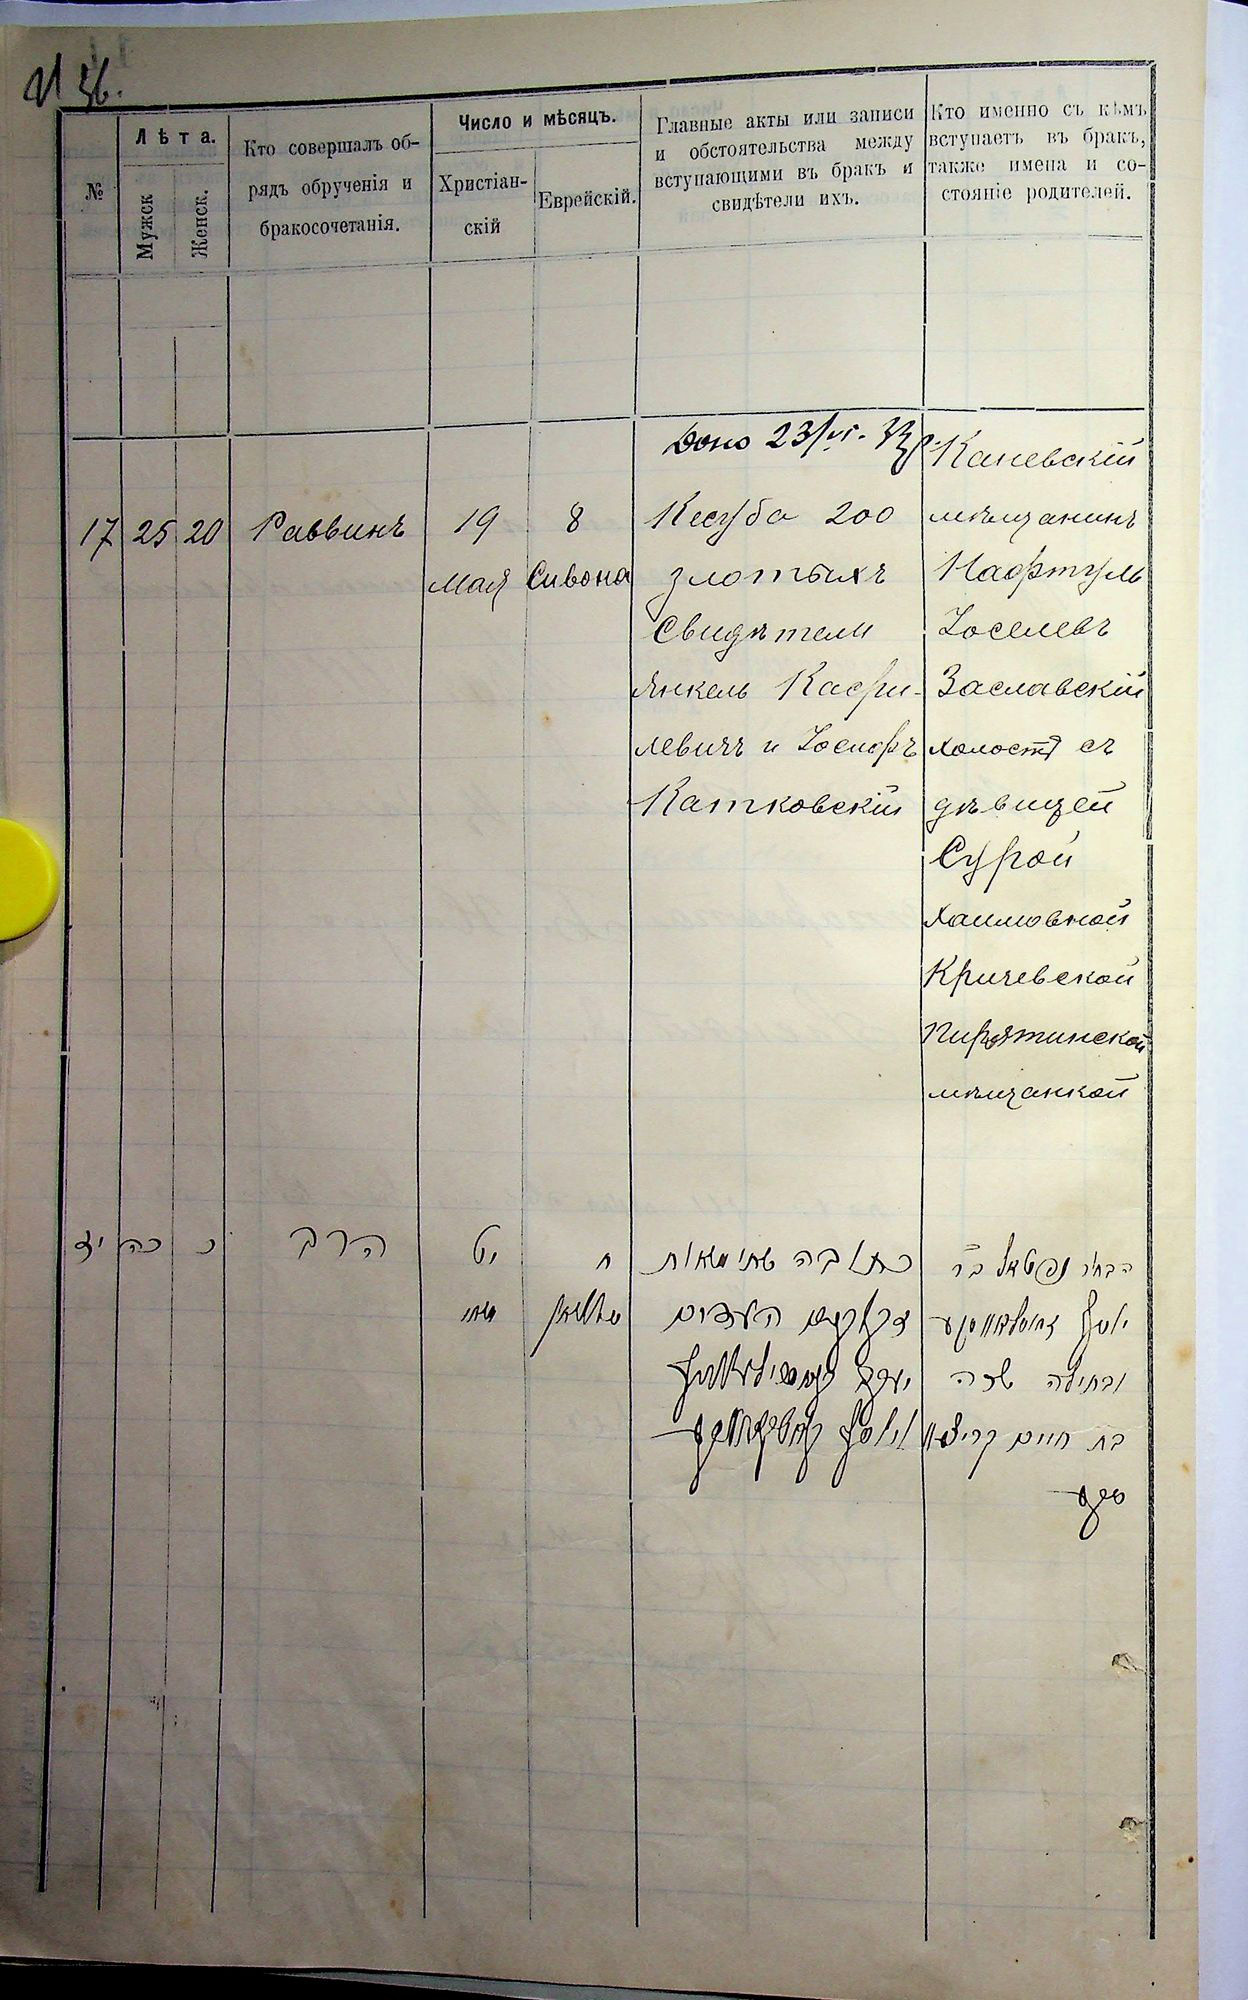 №
Лѣта.
Мужск
Женск.
Кто совершалъ об-
рядъ обрученія и
бракосочетанія.
Число и мѣсяцъ.
Христіан-
скій
Еврейскій.
Главные акты или записи
и обстоятельства между
вступающими въ бракъ и
свидѣтели ихъ.
Кто именно съ кѣмъ
вступаетъ въ бракъ,
также имена и со-
стояніе родителей.
17
25
20
Раввинъ
19
мая
8
Сивона
23/VI.
Кесуба 200
злотыхъ
Свидѣтели
Янкель Касри-
левичъ и Іосифъ
Катковскій
Каневскій
мѣщанинъ
Нафтуль
Іоселевъ
Заславскій
холостъ съ
дѣвицей
Сурой
Хаимовной
Кричевской
Пирятинской
мѣщанкой
יז
כה
כ
הרב
יט
מאי
ח
כתובה שתי מאות
העדים
יעקב
יוסף
הבחור נפטאל בר
יוסף
שרה
בת חיים